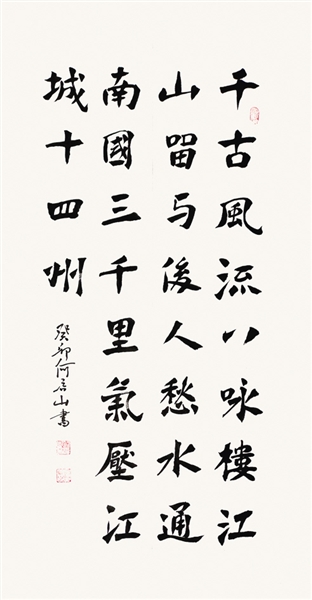 千古風流八咏樓江
山留与後人愁水通
南國三千里氣壓江
城十四州
癸卯何若山書